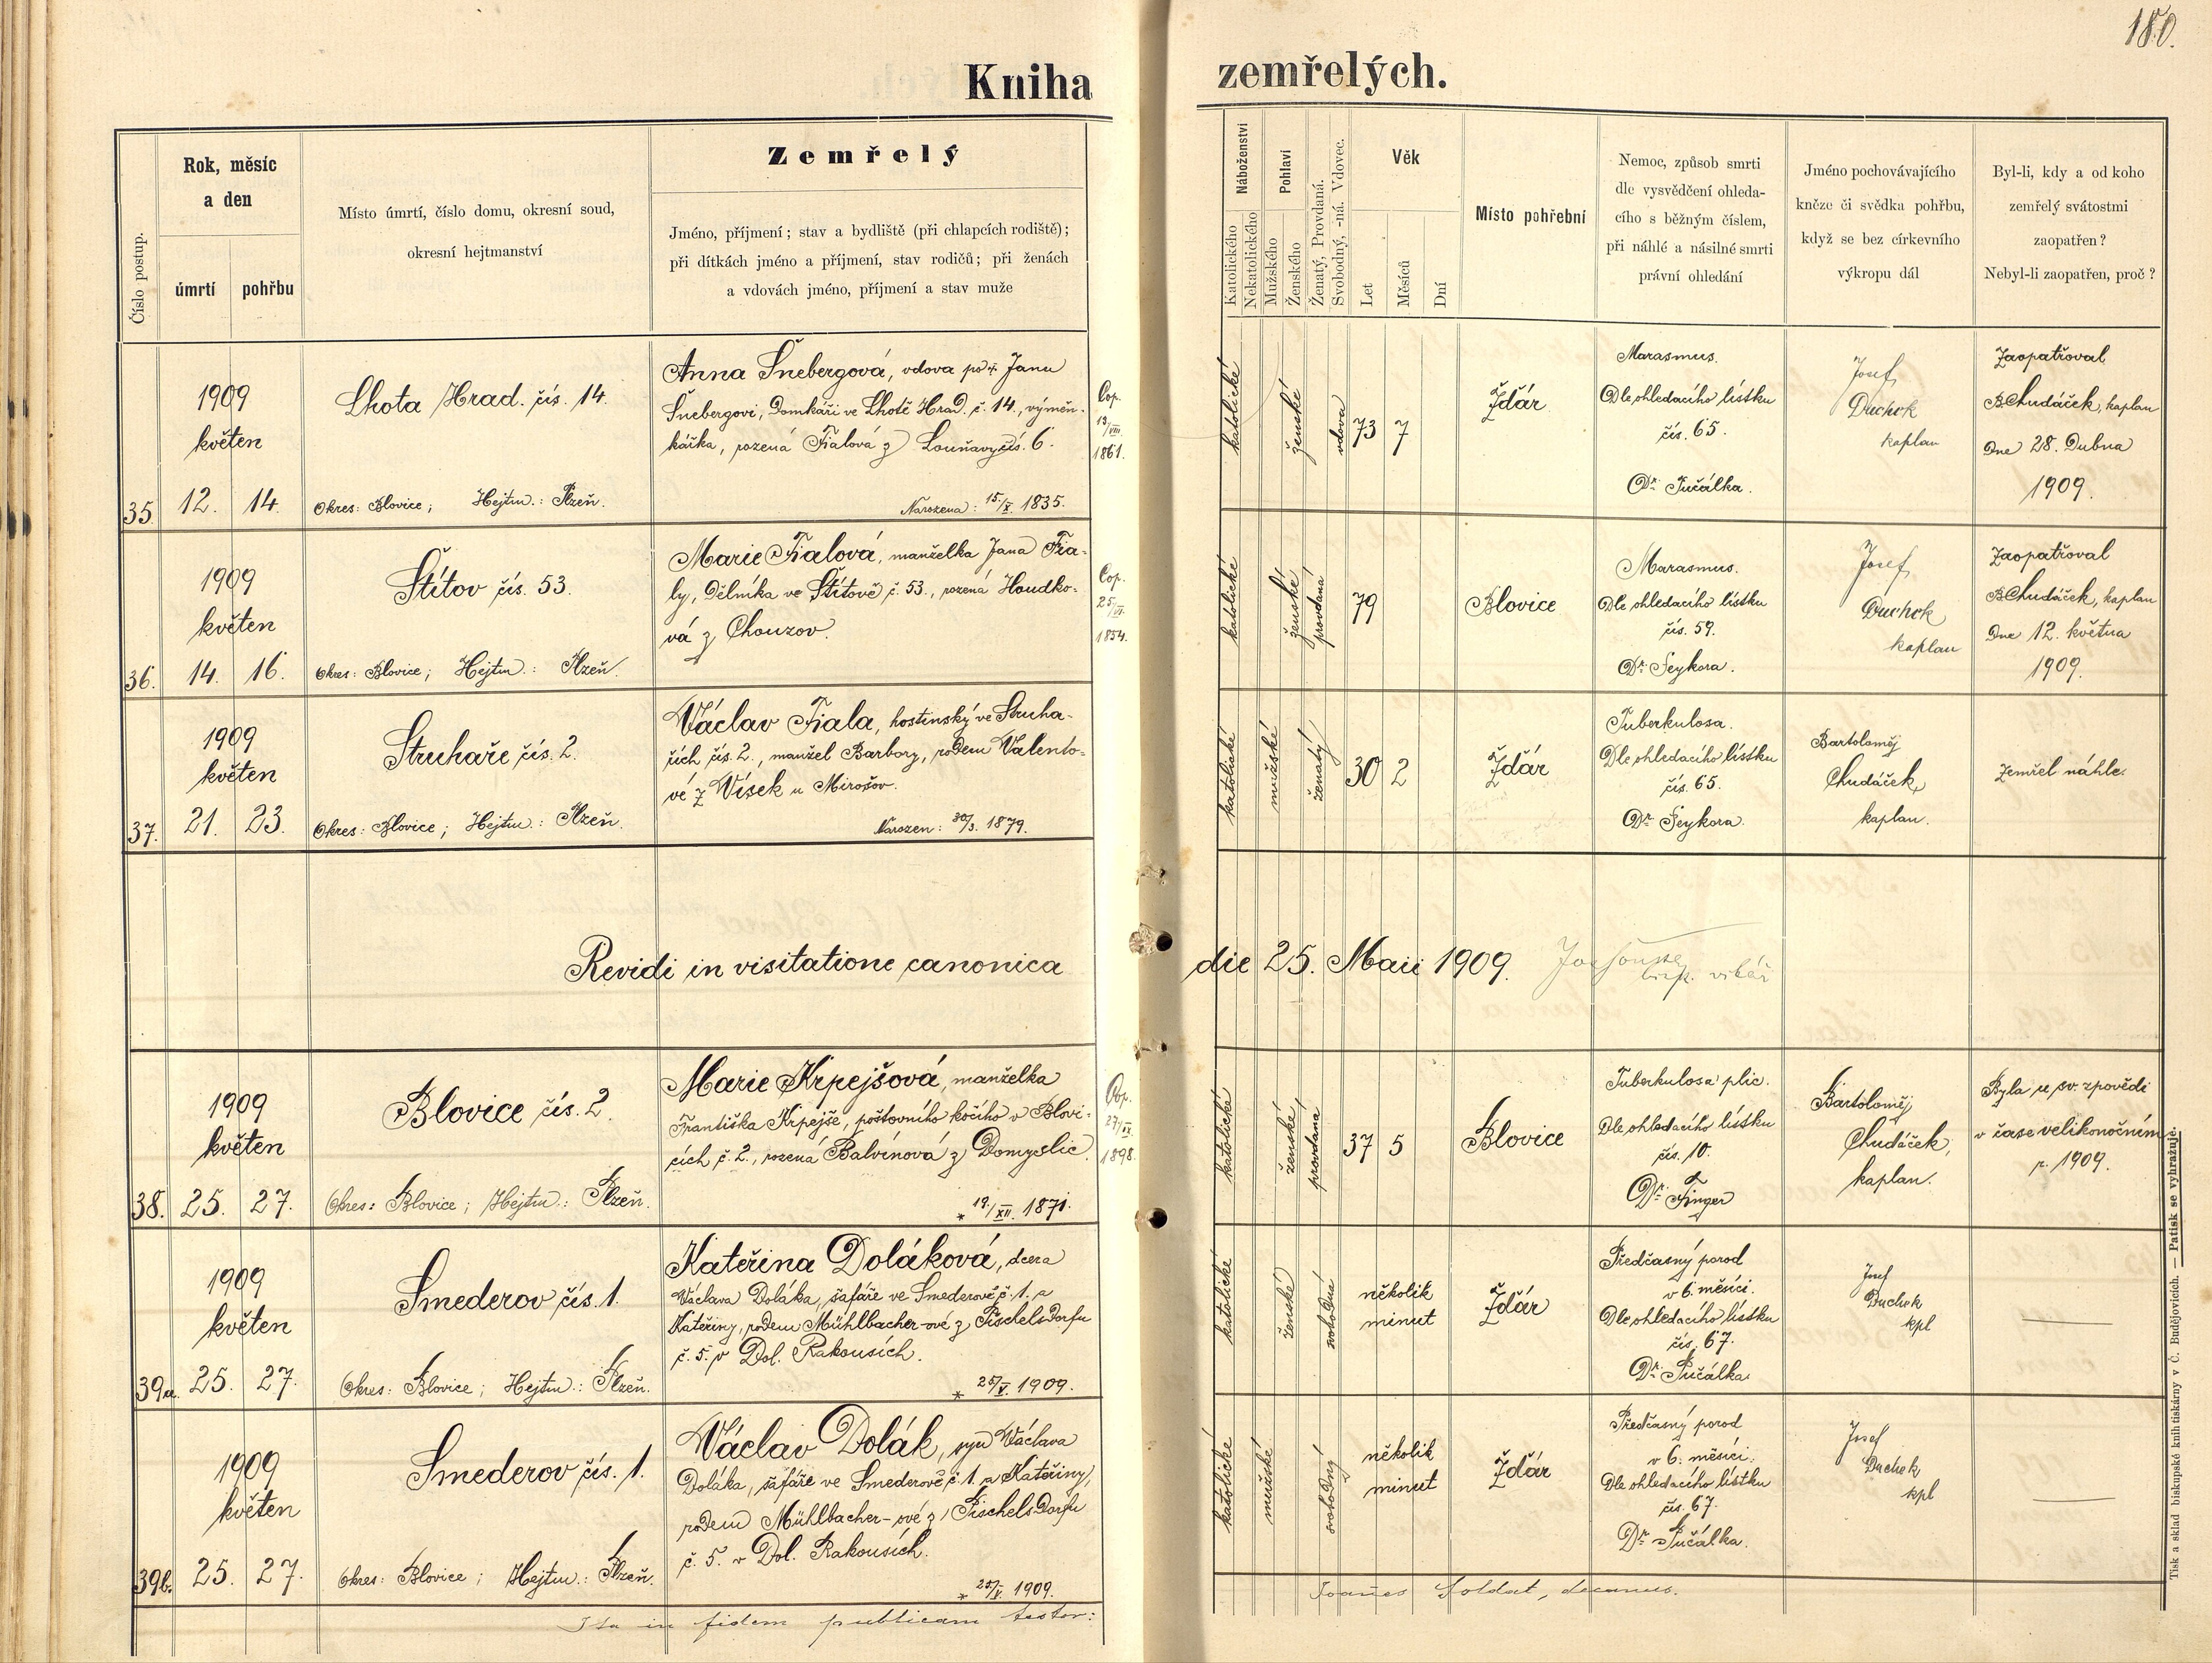 180.
Kniha zemřelých.
Číslo postup.
Rok, měsíc
a den
úmrtí
pohřbu
Místo úmrtí, číslo domu, okresní soud,
okresní hejtmanství
Zemřelý
Jméno, příjmení; stav a bydliště (při chlapcích rodiště);
při dítkách jméno a příjmení, stav rodičů; při ženách
a vdovách jméno, příjmení a stav muže
Náboženství
Katolického
Nekatolického
Pohlaví
Mužského
Ženského
Ženatý, Provdaná.
Svobodný, -ná. Vdovec.
Věk
Let
Měsíců
Dní
Místo pohřební
Nemoc, způsob smrti
dle vysvědčení ohleda-
cího s běžným číslem,
při náhlé a násilné smrti
právní ohledání
Jméno pochovávajícího
kněze či svědka pohřbu,
když se bez církevního
výkropu dál
Byl-li, kdy a od koho
zemřelý svátostmi
zaopatřen?
Nebyl-li zaopatřen, proč?
35
1909
květen
12. 14.
Lhota Hrad. čís. 14.
Okres: Blovice; Hejtm.: Plzeň.
Anna Šnebergová, vdova po † Janu
Šnebergovi, domkáři ve Lhotě Hrad. č. 14., výměn-
kářka, rozená Fialová z Louňavy čís. 6.
Narozena: 15./X. 1835.
Cop.
19/VIII.
1861.
katolické
ženské
vdova
73 7
Ždár
Marasmus.
Dle ohledacího lístku
čís. 65.
Dr. Pučálka.
Josef
Duchek
kaplan
Zaopatřoval
B. Chudáček, kaplan
dne 28. dubna
1909.
36.
1909
květen
14. 16.
Štítov čís. 53.
Okres: Blovice; Hejtm.: Plzeň.
Marie Fialová, manželka Jana Fia-
ly, dělníka ve Štítově č. 53., rozená Houdko-
vá z Chouzov.
Cop.
25/VI.
1854.
katolické
ženské
provdaná
79
Blovice
Marasmus.
Dle ohledacího lístku
čís. 59.
Dr. Seykora.
Josef
Duchek
kaplan
Zaopatřoval
B. Chudáček, kaplan
dne 12. května
1909.
37.
1909
květen
21. 23.
Struhaře čís. 2.
Okres: Blovice; Hejtm.: Plzeň.
Václav Fiala, hostinský ve Struha-
řích čís. 2., manžel Barbory, rodem Valento-
vé z Vísek u Mirošov.
Narozen: 30/3. 1879.
katolické
mužské
ženatý
30 2
Ždár
Tuberkulosa.
Dle ohledacího lístku
čís. 65.
Dr. Seykora.
Bartoloměj
Chudáček,
kaplan.
Zemřel náhle.
Revidi in visitatione canonica die 25. Maii 1909.
bisk. vikář
38.
1909
květen
25. 27.
Blovice čís. 2.
Okres: Blovice; Hejtm.: Plzeň.
Marie Krpejšová, manželka
Františka Krpejše, poštovního kočího v Blovi-
cích č. 2., rozená Balvínová z Domyslic.
* 19./XII. 1871.
Cop.
27/IX.
1898.
katolické
ženské
provdaná
37 5
Blovice
Tuberkulosa plic.
Dle ohledacího lístku
čís. 10.
Dr. Finger
Bartoloměj
Chudáček,
kaplan.
Byla u sv. zpovědi
v čase velikonočním
r. 1909.
39a.
1909
květen
25. 27.
Smederov čís. 1.
Okres: Blovice; Hejtm.: Plzeň.
Kateřina Doláková, dcera
Václava Doláka, šafáře ve Smederově č. 1. a
Kateřiny, rodem Mühlbacher-ové z Pischelsdorfu
č. 5. v Dol. Rakousích.
* 25/V. 1909.
katolické
ženské
svobodné
několik
minut
Ždár
Předčasný porod
v 6. měsíci.
Dle ohledacího lístku
čís. 67.
Dr. Pučálka.
Josef
Duchek
kpl
39b.
1909
květen
25. 27.
Smederov čís. 1.
Okres: Blovice; Hejtm.: Plzeň.
Václav Dolák, syn Václava
Doláka, šafáře ve Smederově č. 1. a Kateřiny,
rodem Mühlbacher-ové z Pischelsdorfu
č. 5. v Dol. Rakousích.
* 25/V. 1909.
katolické
mužské
svobodný
několik
minut
Ždár
Předčasný porod
v 6. měsíci.
Dle ohledacího lístku
čís. 67.
Dr. Pučálka.
Josef
Duchek
kpl
Ita in fidem publicam testor: Joañes Soldat, decanus.
Tisk a sklad biskupské knihtiskárny v Č. Budějovicích. — Patisk se vyhražuje.